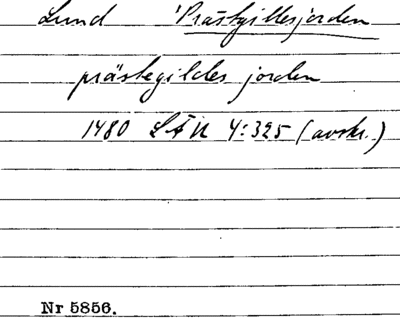 Lund 'Prästgillesjorden
prästegildes jorden
1480 LÄU 4:325 (avskr.)
Nr 5856.